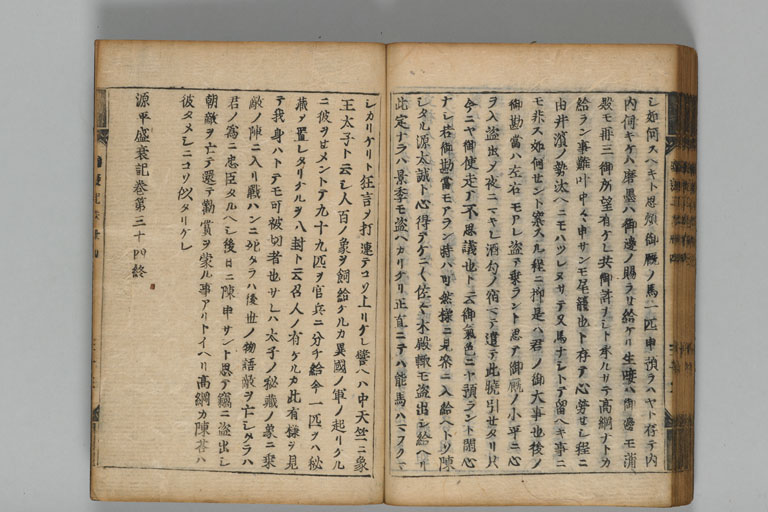 シ如何スヘキト思煩御厩ノ馬一匹申預ラハヤト存テ内
内伺キケハ磨墨ハ御邊ノ賜ラせ給ケリ生唼ハ御邊モ蒲
殿モ再三御所望有ケレ共御許ナシト承ルサテ高綱ナトカ
給ラン事難叶中々申サンモ尾籠也ト存テ心労せシ程ニ
由井濱ノ勢汰ヘニモハツレヌサテ又馬ナシトテ留ヘキ事ニ
モ非ス如何せント案スル程ニ抑是ハ君ノ御大事也後ノ
御勘當ハ左右モアレ盗テ乗ラント思テ御厩ノ小平ニ心
ヲ入盗出シ夜ニマキレ酒勾ノ宿マテ遣テ此曉引せタリ只
今ニヤ御使走テ不思議也ト云御氣色ニヤ預ラント閑心
ナシ若御勘當モアラン時ハ可然様ニ見参ニ入給ヘトソ陳
シタル源太誠ト心得テケニモ佐々木殿轍モ盗出シ給ヘリ
此定ナラハ景季モ盗ヘカリケリ正直ニテハ能馬ハマフクマ
シカリケリト狂言ヲ打連テコソ上リケレ譬ヘハ中天竺ニ象
王太子ト云シ人百ノ象ヲ飼給ケルカ異國ノ軍ノ起リケル
ニ彼ヲせメントテ九十九匹ヲ官兵ニ分チ給今一匹ヲハ秘
藏シ置レタリケルヲ八封ト云召人ノ有ケルカ此有様ヲ見
テ我身ハトテモ可被切者也サレハ太子ノ秘藏ノ象ニ乗
敵ノ陣ニ入リ戰ハンニ死タラハ後世ノ物語敵ヲ亡シタラハ
君ノ為ニ忠臣タルヘシ後日ニ陳申サント思テ竊ニ盗出シ
朝敵ヲ亡テ還テ勸賞ヲ蒙ル事アリトイヘリ高綱カ陳荅ハ
彼タメシニコソ似タリケレ
源平盛衰記卷第三十四終